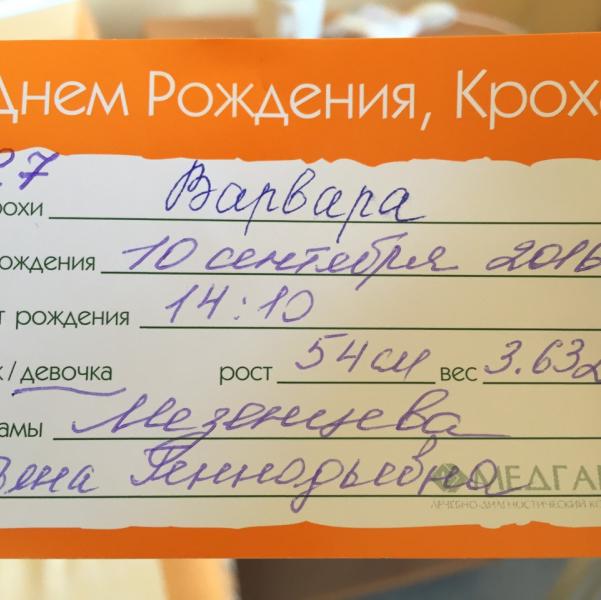 Днем Рождения, Крох
27
рохи Варвара
ождения 10 сентября 2016
т рождения 14:10
/ девочка рост 54см вес 3.632
амы Мезенцева
ена Геннадьевна
МЕДГА
ЛЕЧЕБНО-ДИАГНОСТИЧЕСКИЙ КО